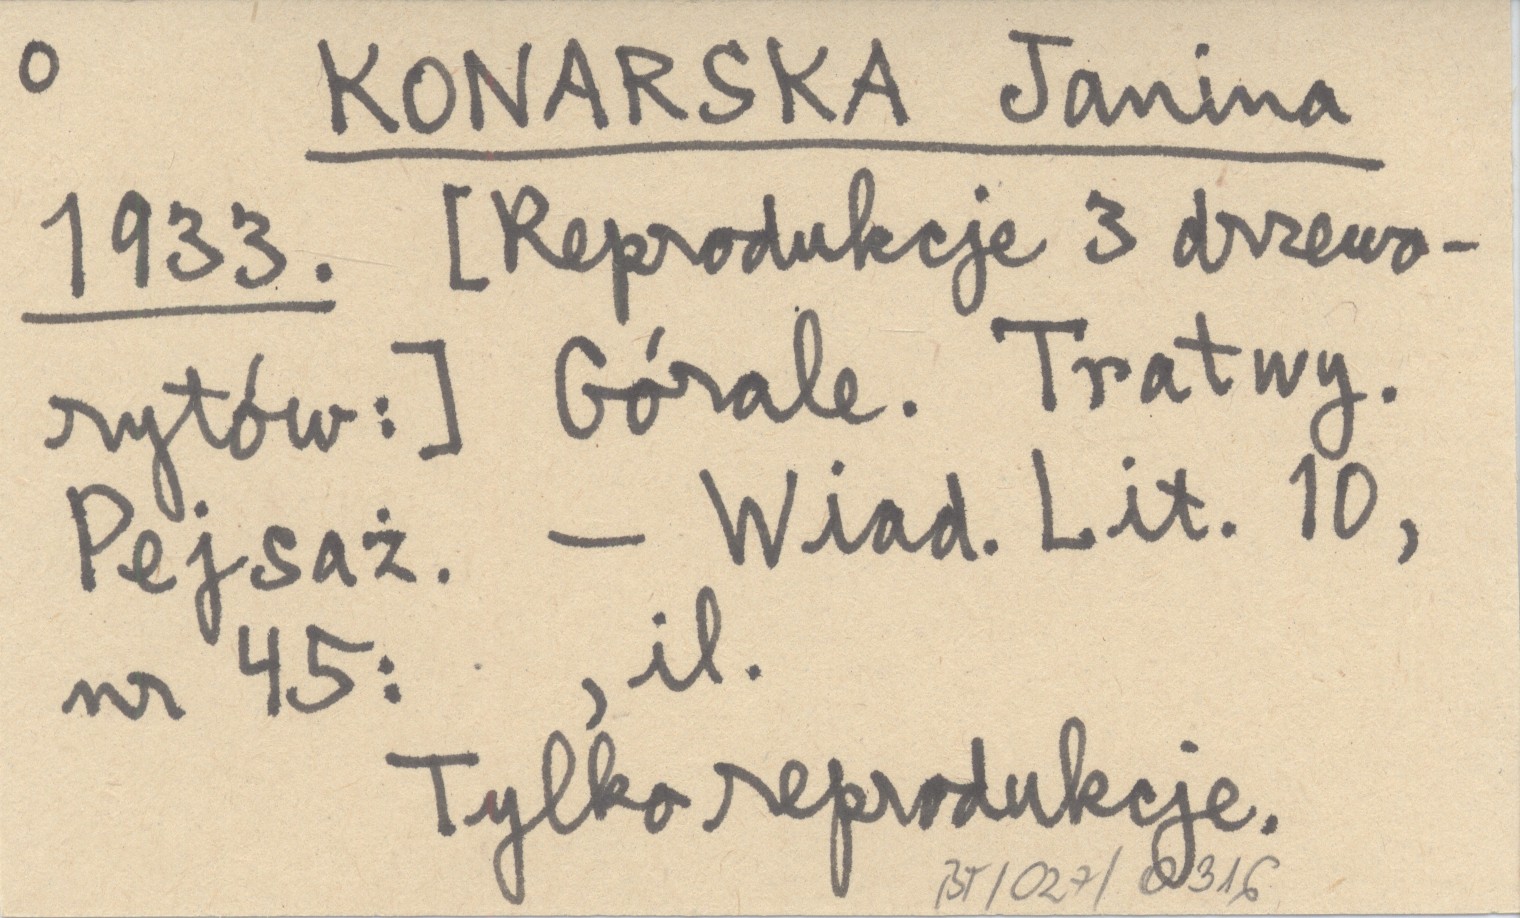 o KONARSKA Janina
1933. [Reprodukcje 3 drzewo-
rytów:] Górale. Tratwy.
Pejsaż. — Wiad. Lit. 10,
nr 45: , il.
Tylko reprodukcje.
BT/027/0316